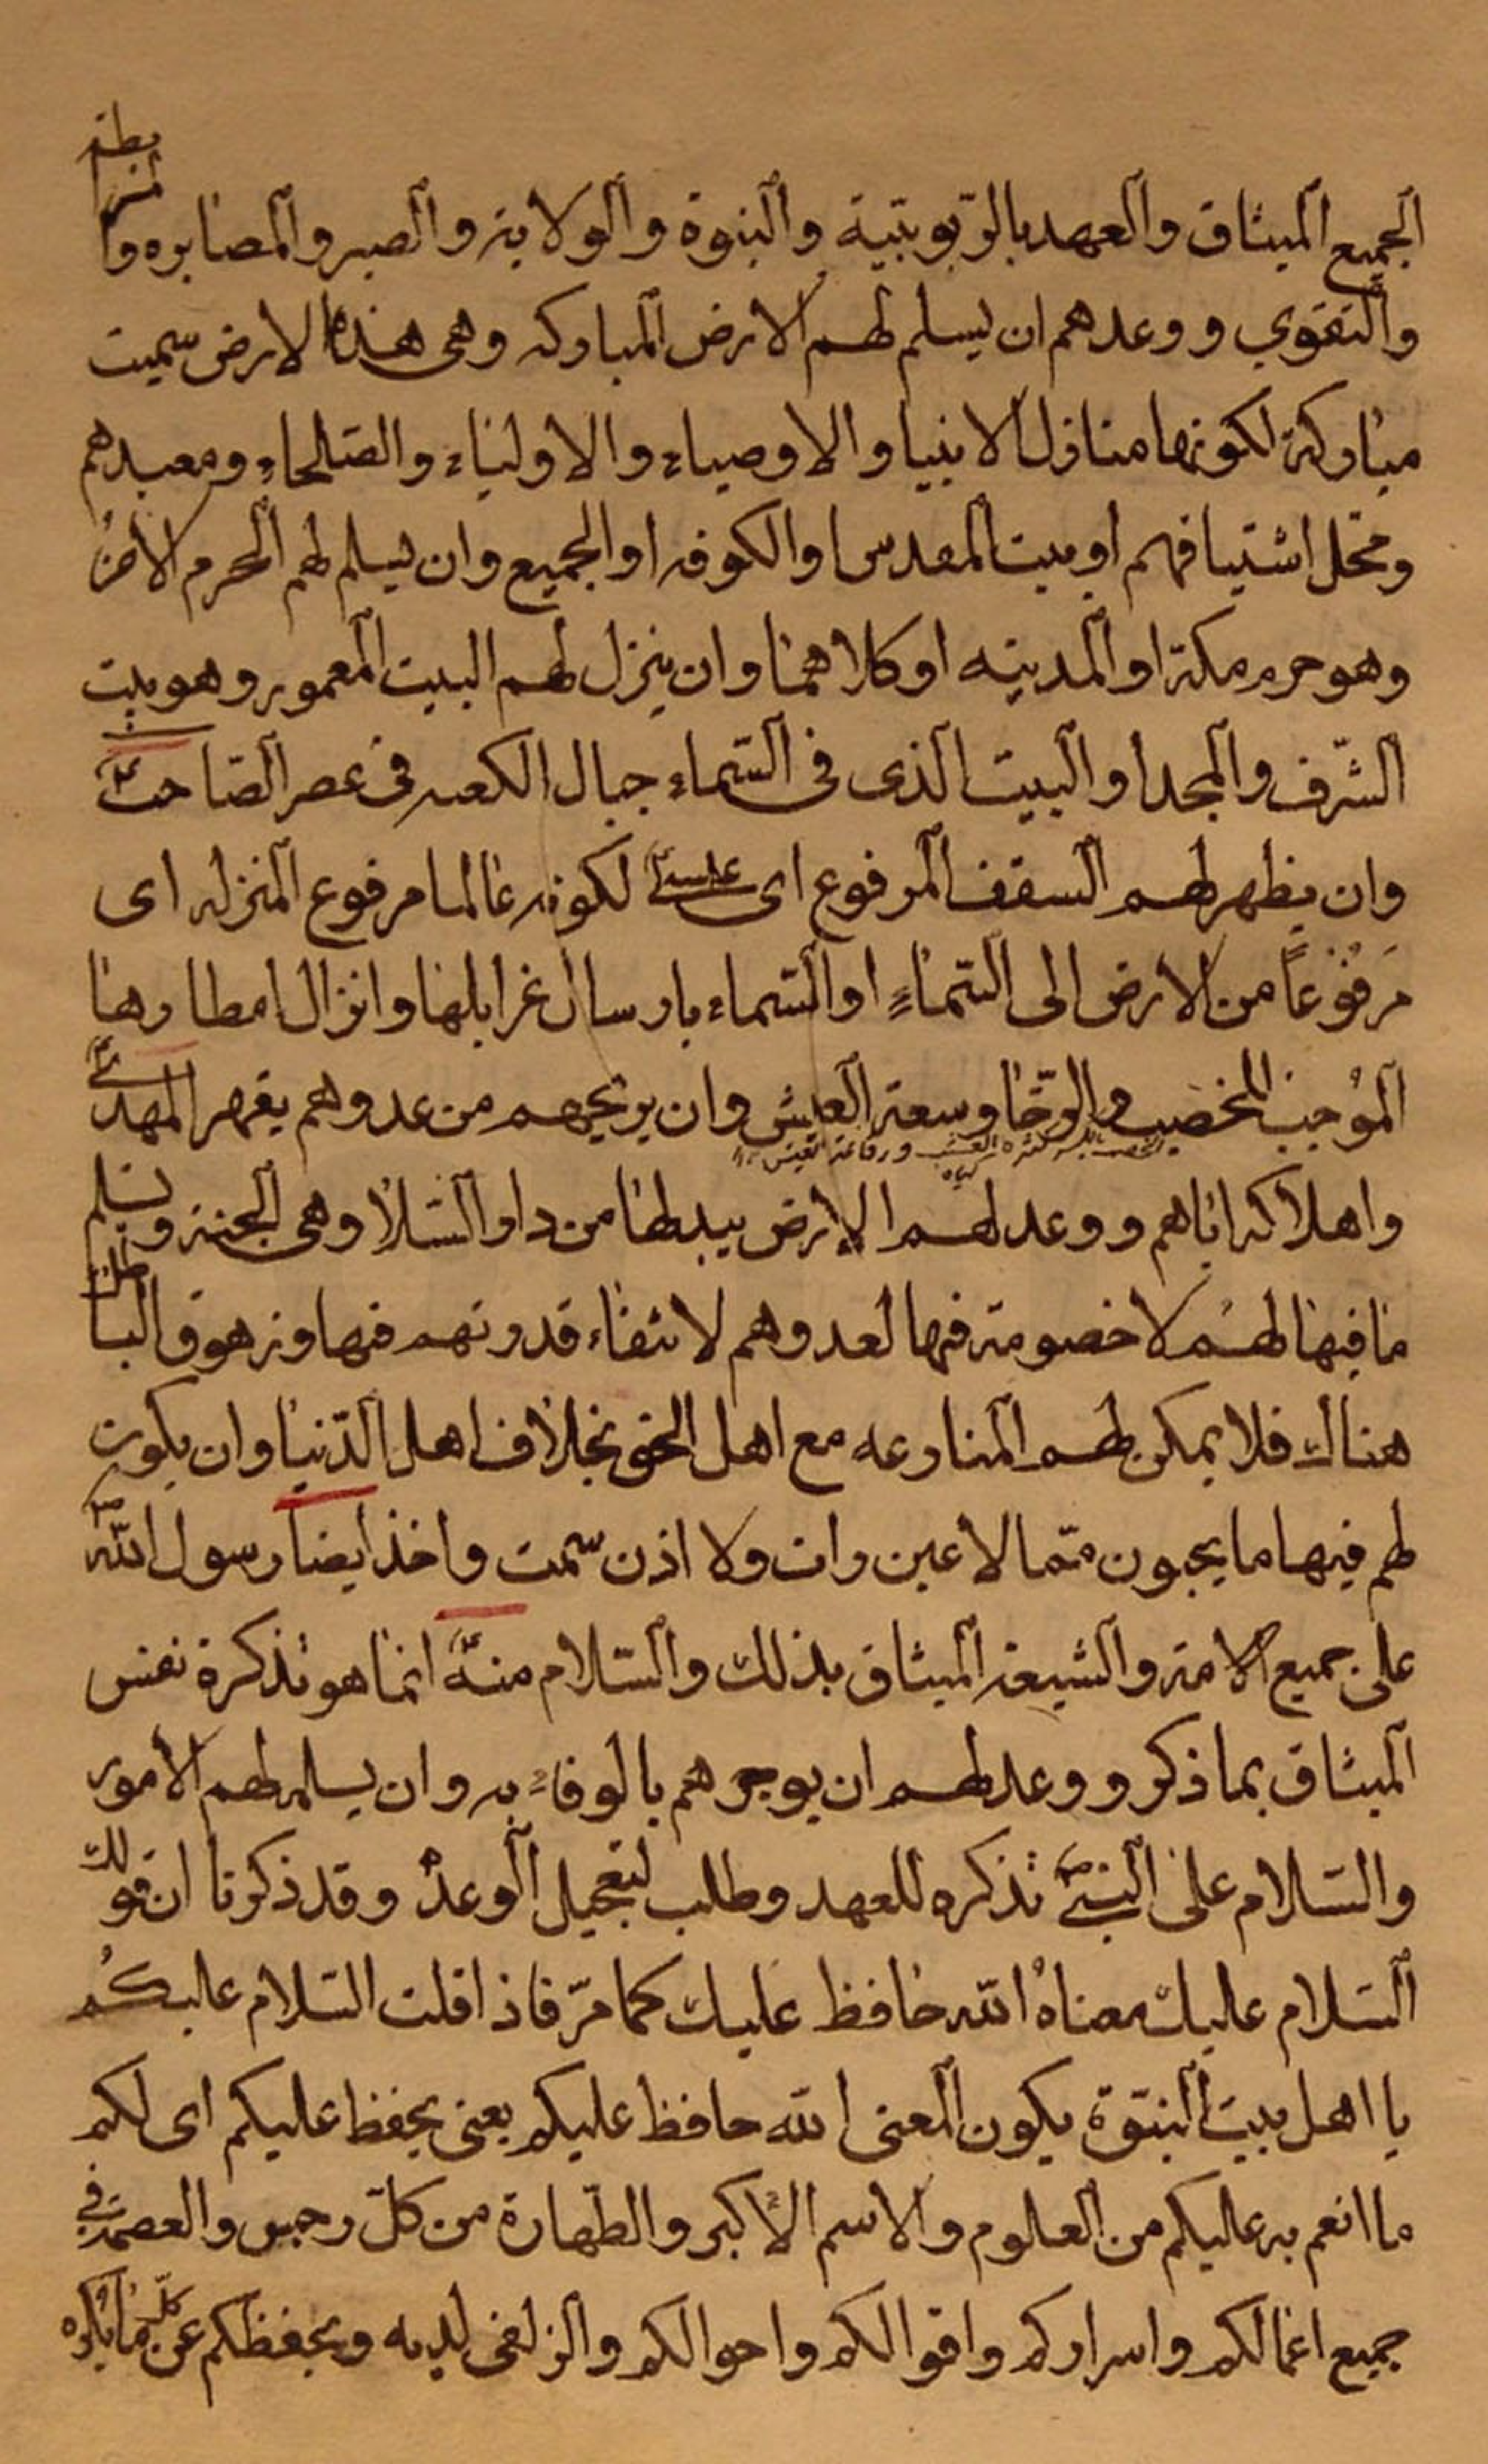 الجميع الميثاق والعهد بالربوبتية والنبوة والولاية والصبر والمصابره والمرابطة
والتقوي ووعدهم ان يسلم لهم الارض المباركه وهى هذه الارض سميت
مباركة لكونها منازل الانبيا والاوصياء والاولياء والصلحاء ومعبدهم
ومحل اشتياقهم او بيت المقدس او الكوفه او الجميع وان يسلم لهم الحرم الامن
وهو حرم مكة او المدينه او كلاهما وان ينزل لهم البيت المعمور وهو بيت
الشرف والمجد او البيت الذى فى السماء جبال الكعبه فى عصر الصاحب
وان يظهر لهم السقف المرفوع اى عيسى لكونه عالما مرفوع المنزله اى
مَرفوُعاً من الارض الى السماءِ او السماء بارسال غرابلها وانزال امطارها
الموُجب للخصب والرخا وسعة العيش وان يريحهم من عدوهم يقهر المهدى
الخصب بالكسر كثرة العشب ورفاغة العيش
كياه
واهلاكه اياهم ووعد لهم الارض يبدلها من دار السلام وهى الجنة ويسلم
ما فيها لهم لا خصومة فيها لعدوهم لانتفاء قدرتهم فيها وزهوق الباطل
هناك فلا يمكن لهم المنارعه مع اهل الحق بخلاف اهل الدنيا وان يكون
لهم فيها ما يحبون مما لا عين رات ولا اذن سمعت واخذ ايضا رسول الله ص
على جميع الامة والشيعة الميثاق بذلك والسلام منه انما هو تذكرة نفس
الميثاق بما ذكر ووعد لهم ان يوجرهم بالوفاء به وان يسلم لهم الأمور
والسلام على النبى تذكره للعهد وطلب لتعجيل الوعد وقد ذكرنا ان قولك
السلام عليك معناهُ الله حافظ عليك كما مرّ فاذا قلت السلام عليكم
يا اهل بيت النبوّة يكون المعنى الله حافظ عليكم يعنى يحفظ عليكم اى لكم
ما انعم به عليكم من العلوم والاسم الأكبر والطهارة من كلّ رجس والعصمة فى
جميع اعمالكم واسراركم واقوالكم واحوالكم والزلفى لديه ويحفظكم عن كلّ ما يكره